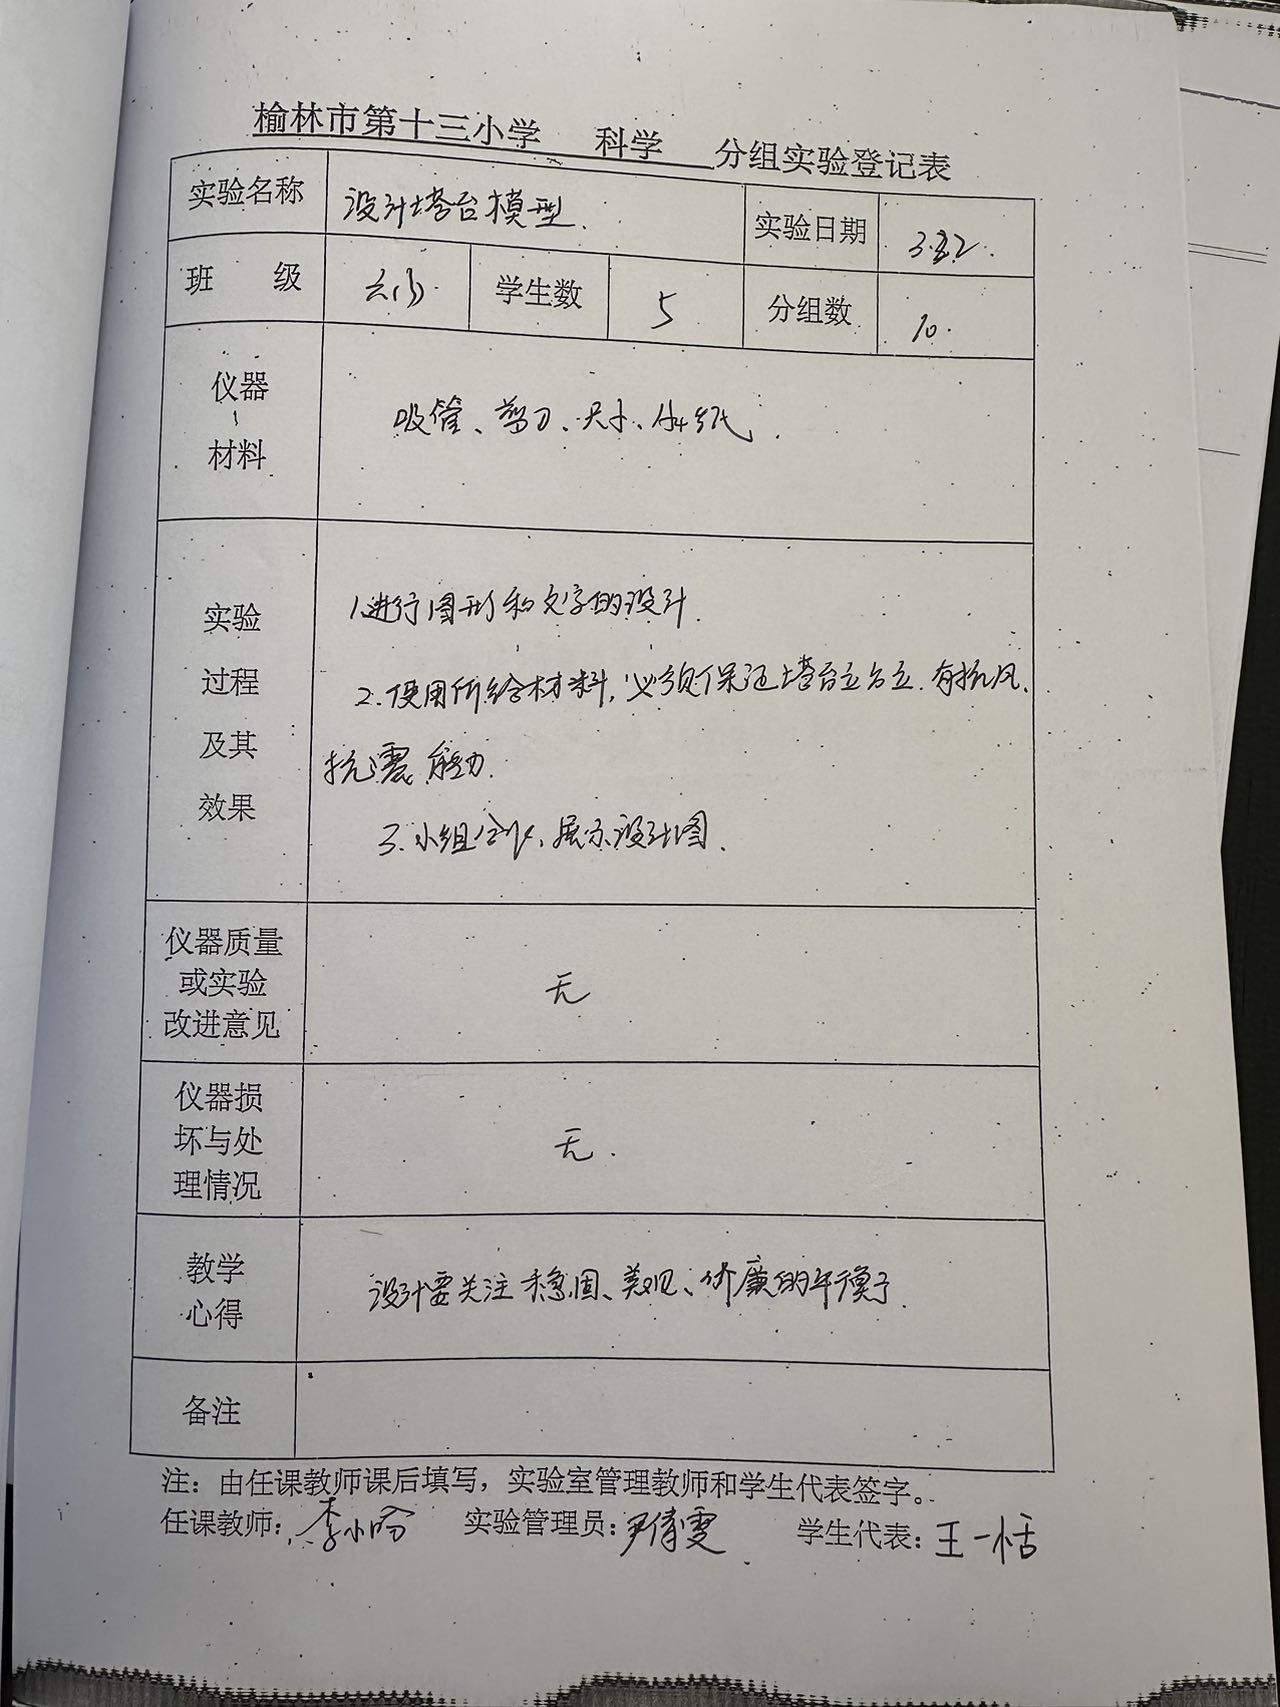 榆林市第十三小学 科学 分组实验登记表
实验名称 设计塔台模型. 实验日期
班 级 学生数 5 分组数 10.
仪器
材料
吸管、剪刀、尺子、A4纸.
实验
过程
及其
效果
1.进行图形和文字的设计.
2.使用所给材料,必须保证塔台立, 有抗风、
抗震能力.
3.小组合作,展示设计图.
仪器质量
或实验
改进意见
无
仪器损
坏与处
理情况
无.
教学
心得
设计要关注稳固、美观、价廉的平衡.
备注
注：由任课教师课后填写，实验室管理教师和学生代表签字。
任课教师: 李小 实验管理员: 尹倩雯 学生代表: 王一恬